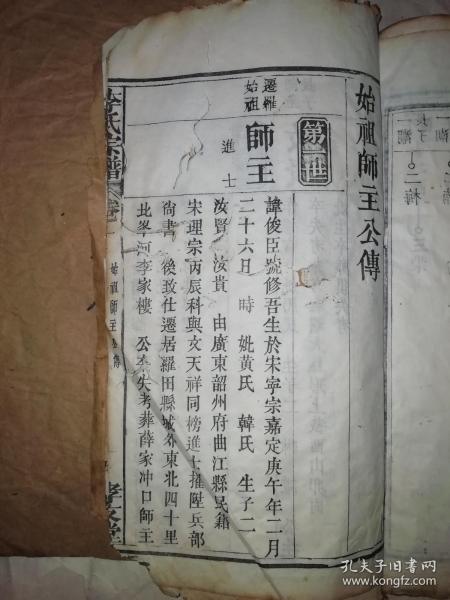 始祖師主公傳
第一世
遷羅始祖
師主
進士
諱俊臣號修吾生於宋寧宗嘉定庚午年二月
二十六日 時 妣黃氏 韓氏 生子二
汝賢 汝貴 由廣東韶州府曲江縣民籍
宋理宗丙辰科與文天祥同榜進士擢陞兵部
尚書 後致仕遷居羅田縣城外東北四十里
北峯河李家樓 公失考葬薛家冲口師主
李氏宗譜
卷
始祖師主公傳
二梅
孔夫子旧书网